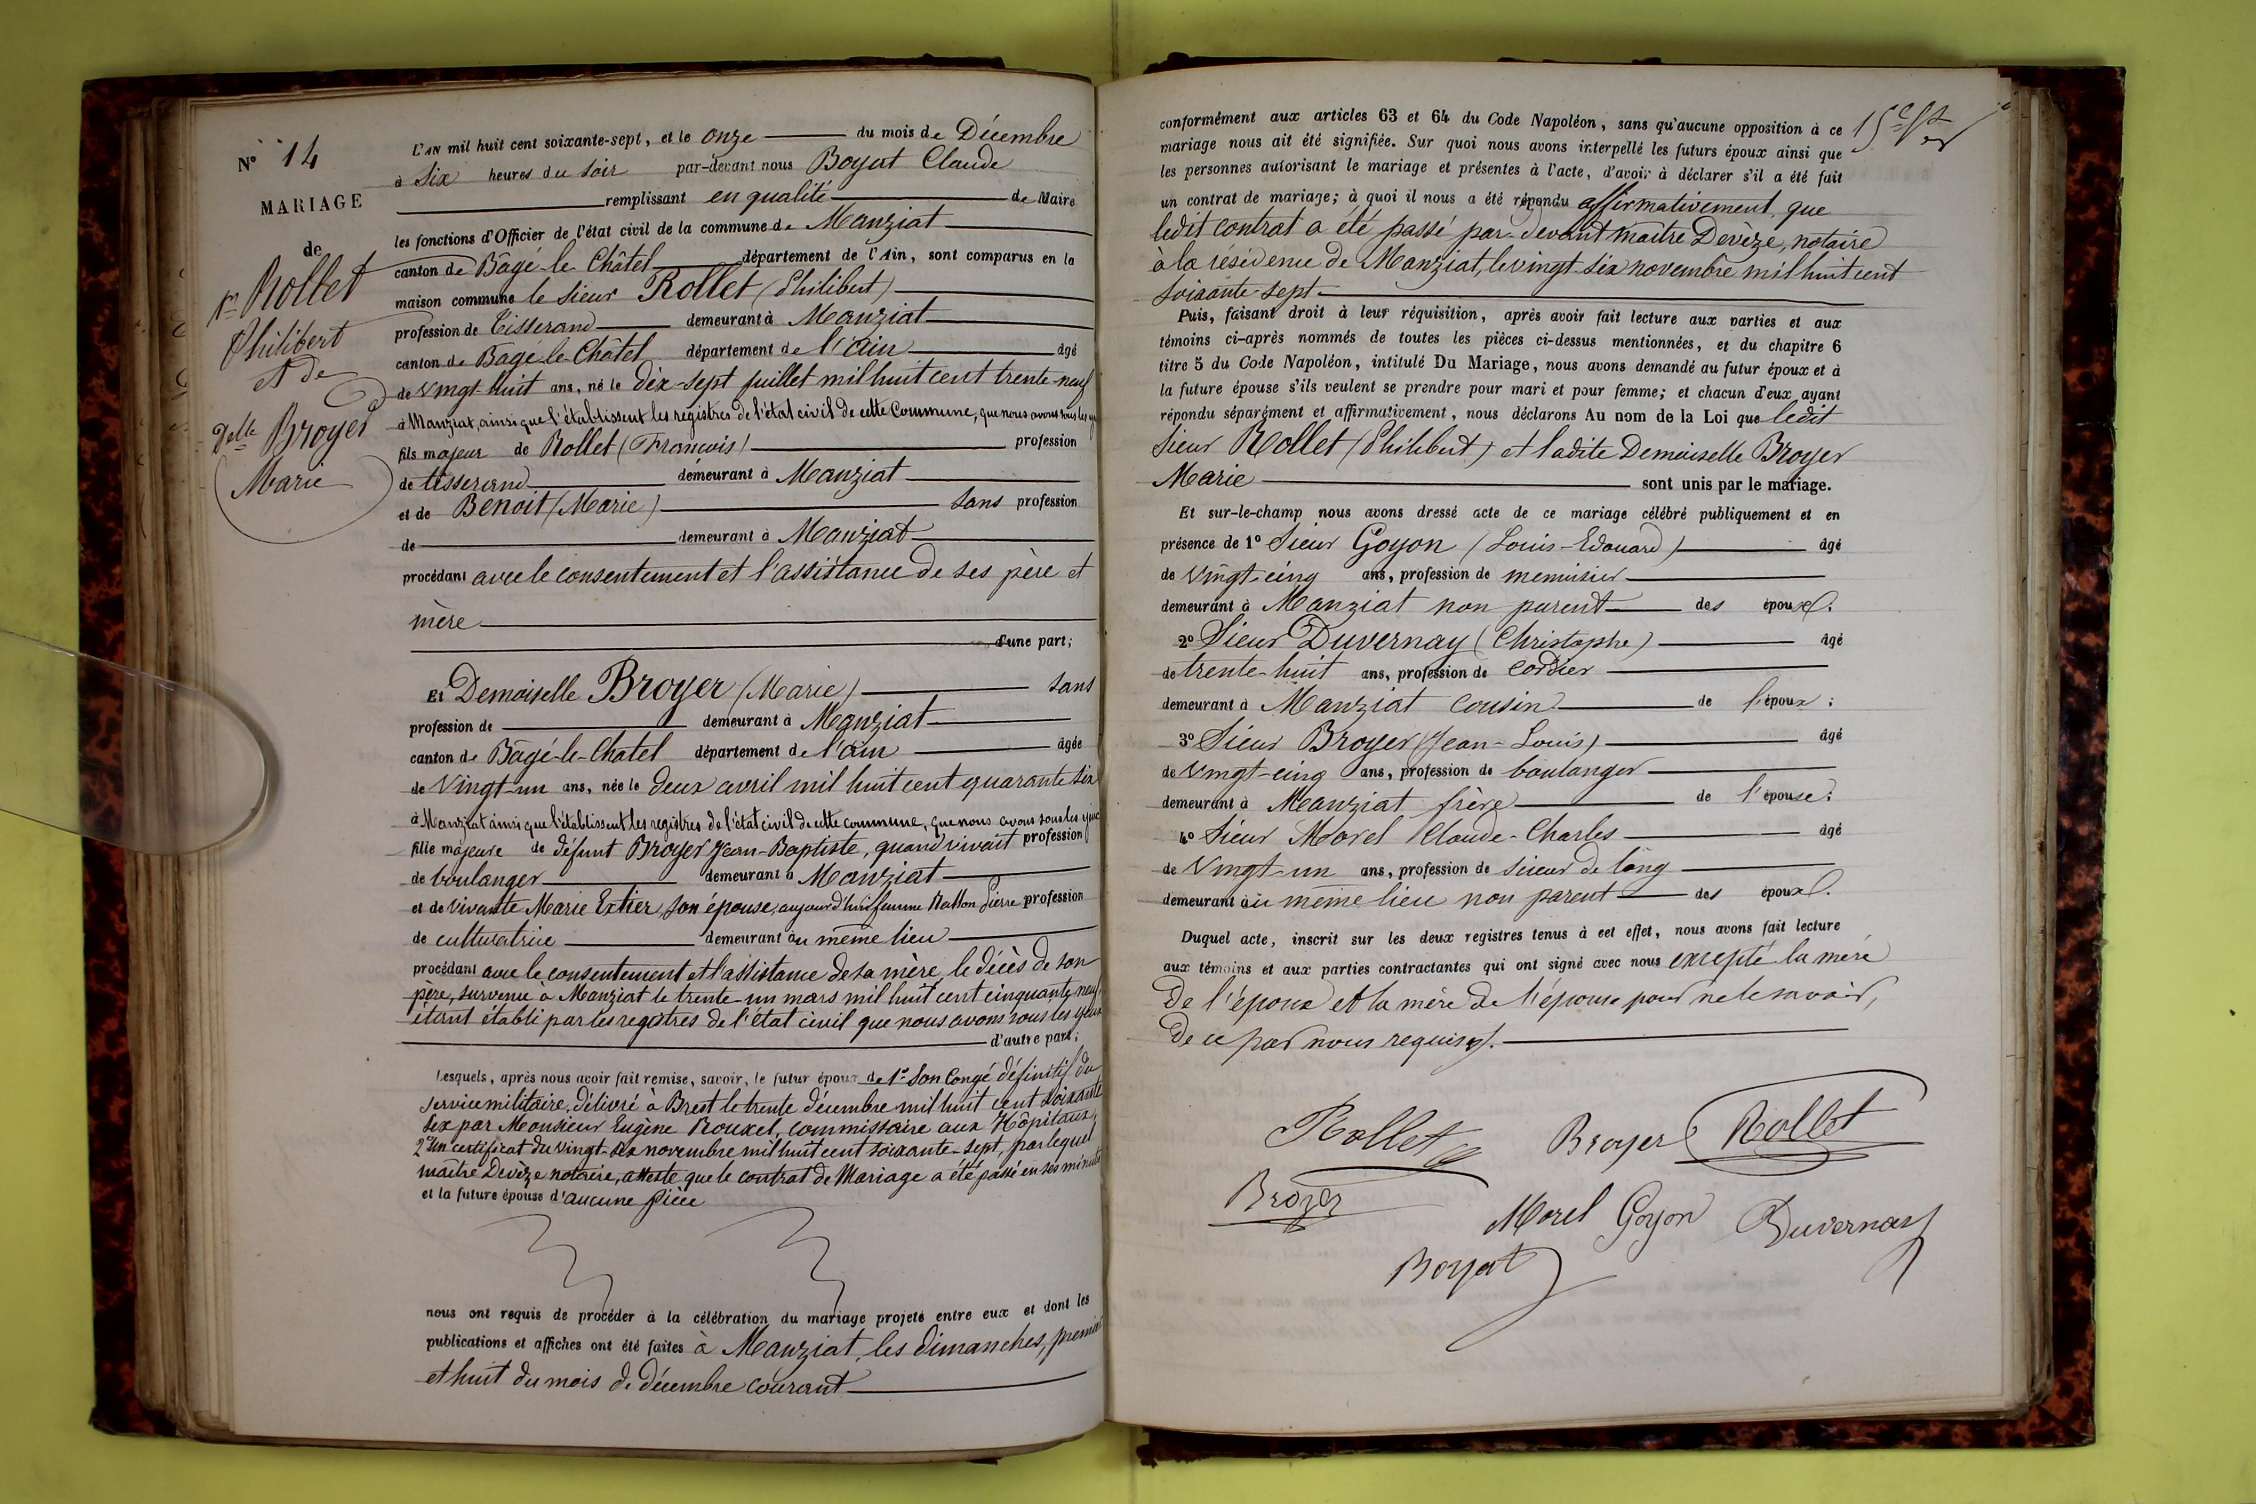 N° 14
MARIAGE
de
Sr Rollet
Philibert
et de
Delle Broyer
Marie
L'AN mil huit cent soixante-sept, et le onze du mois de Décembre
à Six heures du Soir par-devant nous Boyat Claude
remplissant en qualité de Maire
les fonctions d'Officier de l'état civil de la commune de Manziat
canton de Bâgé-le-Châtel département de l'Ain, sont comparus en la
maison commune le Sieur Rollet (Philibert)
profession de Tisserand demeurant à Manziat
canton de Bâgé-le-Châtel département de l'ain âgé
de Vingt-huit ans, né le dix-sept juillet mil huit cent trente-neuf
à Manziat, ainsi que l'établissent les registres de l'état civil de cette Commune, que nous avons sous les
fils majeur de Rollet (François) profession
de tisserand demeurant à Manziat
et de Benoit (Marie) sans profession
de demeurant à Manziat
procédant avec le consentement et l'assistance de ses père et
mère
d'une part;
Et Demoiselle Broyer (Marie) sans
profession de demeurant à Manziat
canton de Bâgé-le-Chatel département de l'ain âgée
de Vingt-un ans, née le deux avril mil huit cent quarante six
à Manziat ainsi que l'établissent les registres de l'état civil de cette commune, que nous avons sous les yeux
fille majeure de défunt Broyer Jean-Baptiste, quand vivait profession
de boulanger demeurant à Manziat
et de vivante Marie Extier, son épouse, aujourd'hui femme Pierre profession
de cultivatrice demeurant au même lieu
procédant avec le consentement et l'assistance de sa mère, le décès de son
père, survenu à Manziat le trente-un mars mil huit cent cinquante neuf
étant établi par les registres de l'état civil que nous avons sous les yeux
d'autre part;
Lesquels, après nous avoir fait remise, savoir, le futur époux de 1° Son Congé définitif du
service militaire, délivré à Brest le trente décembre mil huit cent soixante
six par Monsieur Eugène Rouxel, commissaire aux Hôpitaux,
2° Un certificat du vingt-six novembre mil huit cent soixante-sept, par lequel
maître Devèze notaire, atteste que le contrat de Mariage a été passé en ses minutes
et la future épouse d'aucune pièce
nous ont requis de procéder à la célébration du mariage projeté entre eux et dont les
publications et affiches ont été faites à Manziat, les dimanches, premier
et huit du mois de décembre courant
conformément aux articles 63 et 64 du Code Napoléon, sans qu'aucune opposition à ce
mariage nous ait été signifiée. Sur quoi nous avons interpellé les futurs époux ainsi que
les personnes autorisant le mariage et présentes à l'acte, d'avoir à déclarer s'il a été fait
un contrat de mariage; à quoi il nous a été répondu affirmativement, que
ledit contrat a été passé par-devant maître Devèze, notaire
à la résidence de Manziat, le vingt-six novembre mil huit cent
soixante-sept
Puis, faisant droit à leur réquisition, après avoir fait lecture aux parties et aux
témoins ci-après nommés de toutes les pièces ci-dessus mentionnées, et du chapitre 6
titre 5 du Code Napoléon, intitulé Du Mariage, nous avons demandé au futur époux et à
la future épouse s'ils veulent se prendre pour mari et pour femme; et chacun d'eux ayant
répondu séparément et affirmativement, nous déclarons Au nom de la Loi que ledit
Sieur Rollet (Philibert) et ladite Demoiselle Broyer
Marie sont unis par le mariage.
Et sur-le-champ nous avons dressé acte de ce mariage célébré publiquement et en
présence de 1° Sieur Goyon (Louis-Edouard) âgé
de Vingt-cinq ans, profession de menuisier
demeurant à Manziat non parent des époux.
2° Sieur Duvernay (Christophe) âgé
de trente-huit ans, profession de cordier
demeurant à Manziat cousin de l'époux;
3° Sieur Broyer (Jean-Louis) âgé
de Vingt-cinq ans, profession de boulanger
demeurant à Manziat frère de l'épouse;
4° Sieur Morel Claude-Charles âgé
de Vingt-un ans, profession de scieur de long
demeurant au même lieu non parent des époux.
Duquel acte, inscrit sur les deux registres tenus à cet effet, nous avons fait lecture
aux témoins et aux parties contractantes qui ont signé avec nous excepté la mère
de l'époux et la mère de l'épouse pour ne le savoir,
de ce par nous requises.
Rollet Broyer Rollet
Broyer
Morel Goyon Duvernay
Boyat